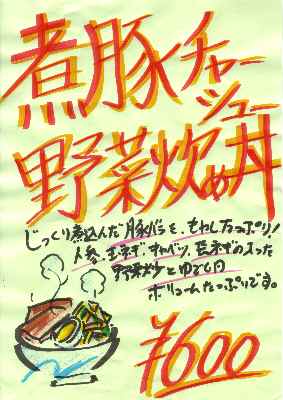 煮豚チャーシュー
野菜炒め丼
じっくり煮込んだ豚バラと、もやしたっぷり!
人参、玉ネギ、キャベツ、長ネギの入った
野菜炒めとゆで卵
ボリュームたっぷりです。
¥600